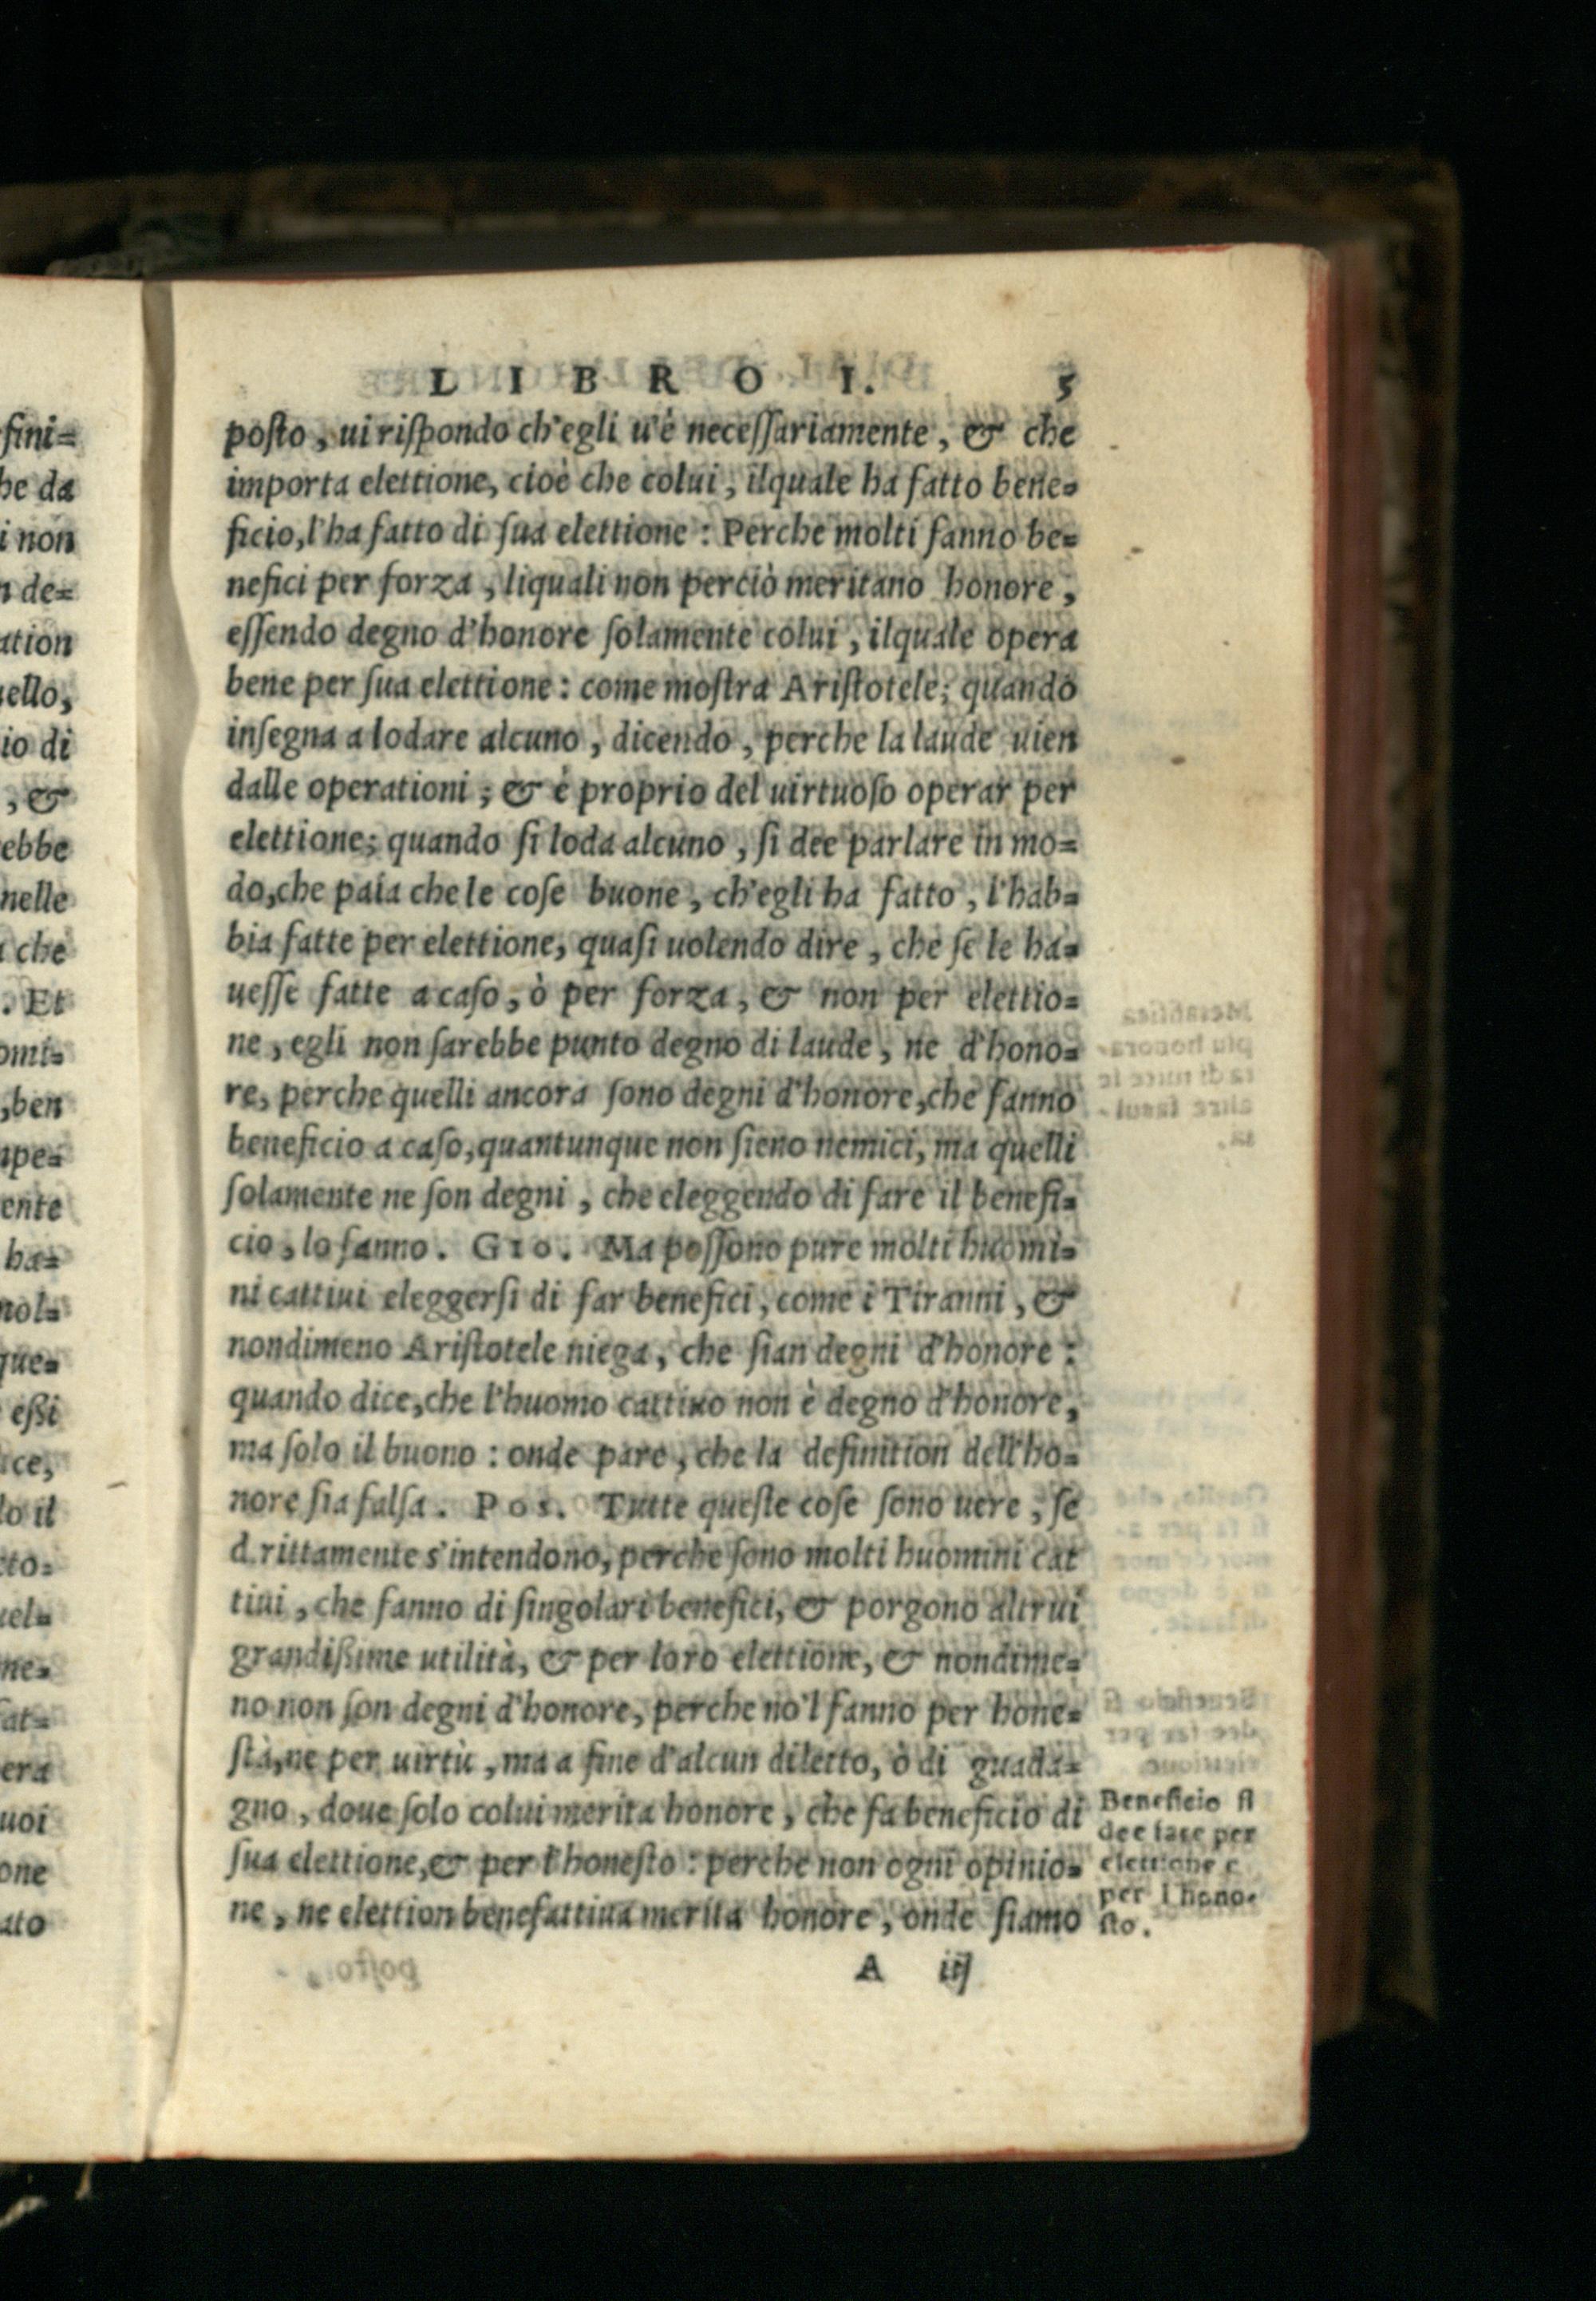 LIBRO I. 5
posto, ui rispondo ch'egli u'è necessariamente, & che
importa elettione, cioè che colui, ilquale ha fatto bene=
ficio, l'ha fatto di sua elettione: Perche molti fanno be=
nefici per forza, liquali non perciò meritano honore,
essendo degno d'honore solamente colui, ilquale opera
bene per sua elettione: come mostra Aristotele, quando
insegna a lodare alcuno, dicendo, perche la laude uien
dalle operationi; & è proprio del uirtuoso operar per
elettione; quando si loda alcuno, si dee parlare in mo=
do, che paia che le cose buone, ch'egli ha fatto, l'hab=
bia fatte per elettione, quasi uolendo dire, che se le ha=
uesse fatte a caso, ò per forza, & non per elettio=
ne, egli non sarebbe punto degno di laude, ne d'hono=
re, perche quelli ancora sono degni d'honore, che fanno
beneficio a caso, quantunque non sieno nemici, ma quelli
solamente ne son degni, che eleggendo di fare il benefi=
cio, lo fanno. GIO. Ma possono pure molti huomi=
ni cattiui eleggersi di far benefici, come i Tiranni, &
nondimeno Aristotele niega, che sian degni d'honore:
quando dice, che l'huomo cattiuo non è degno d'honore,
ma solo il buono: onde pare, che la definition dell'ho=
nore sia falsa. POS. Tutte queste cose sono uere, se
drittamente s'intendono, perche sono molti huomini cat
tiui, che fanno di singolari benefici, & porgono altrui
grandissime utilità, & per loro elettione, & nondime=
no non son degni d'honore, perche no'l fanno per hone=
stà, ne per uirtù, ma a fine d'alcun diletto, ò di guada=
gno, doue solo colui merita honore, che fa beneficio di
sua elettione, & per l'honesto: perche non ogni opinio=
ne, ne elettion benefattiua merita honore, onde siamo
Beneficio si
dee fare per
elettione e
per l hone-
sto.
A iij
fini=
he da
i non
n de=
ation
uello,
io di
, &
ebbe
nelle
a che
. Et
omi=
, ben
mpe=
ente
ha=
mol=
que=
essi
ice,
lo il
tto=
uel=
ne=
fat=
era
uoi
one
ato